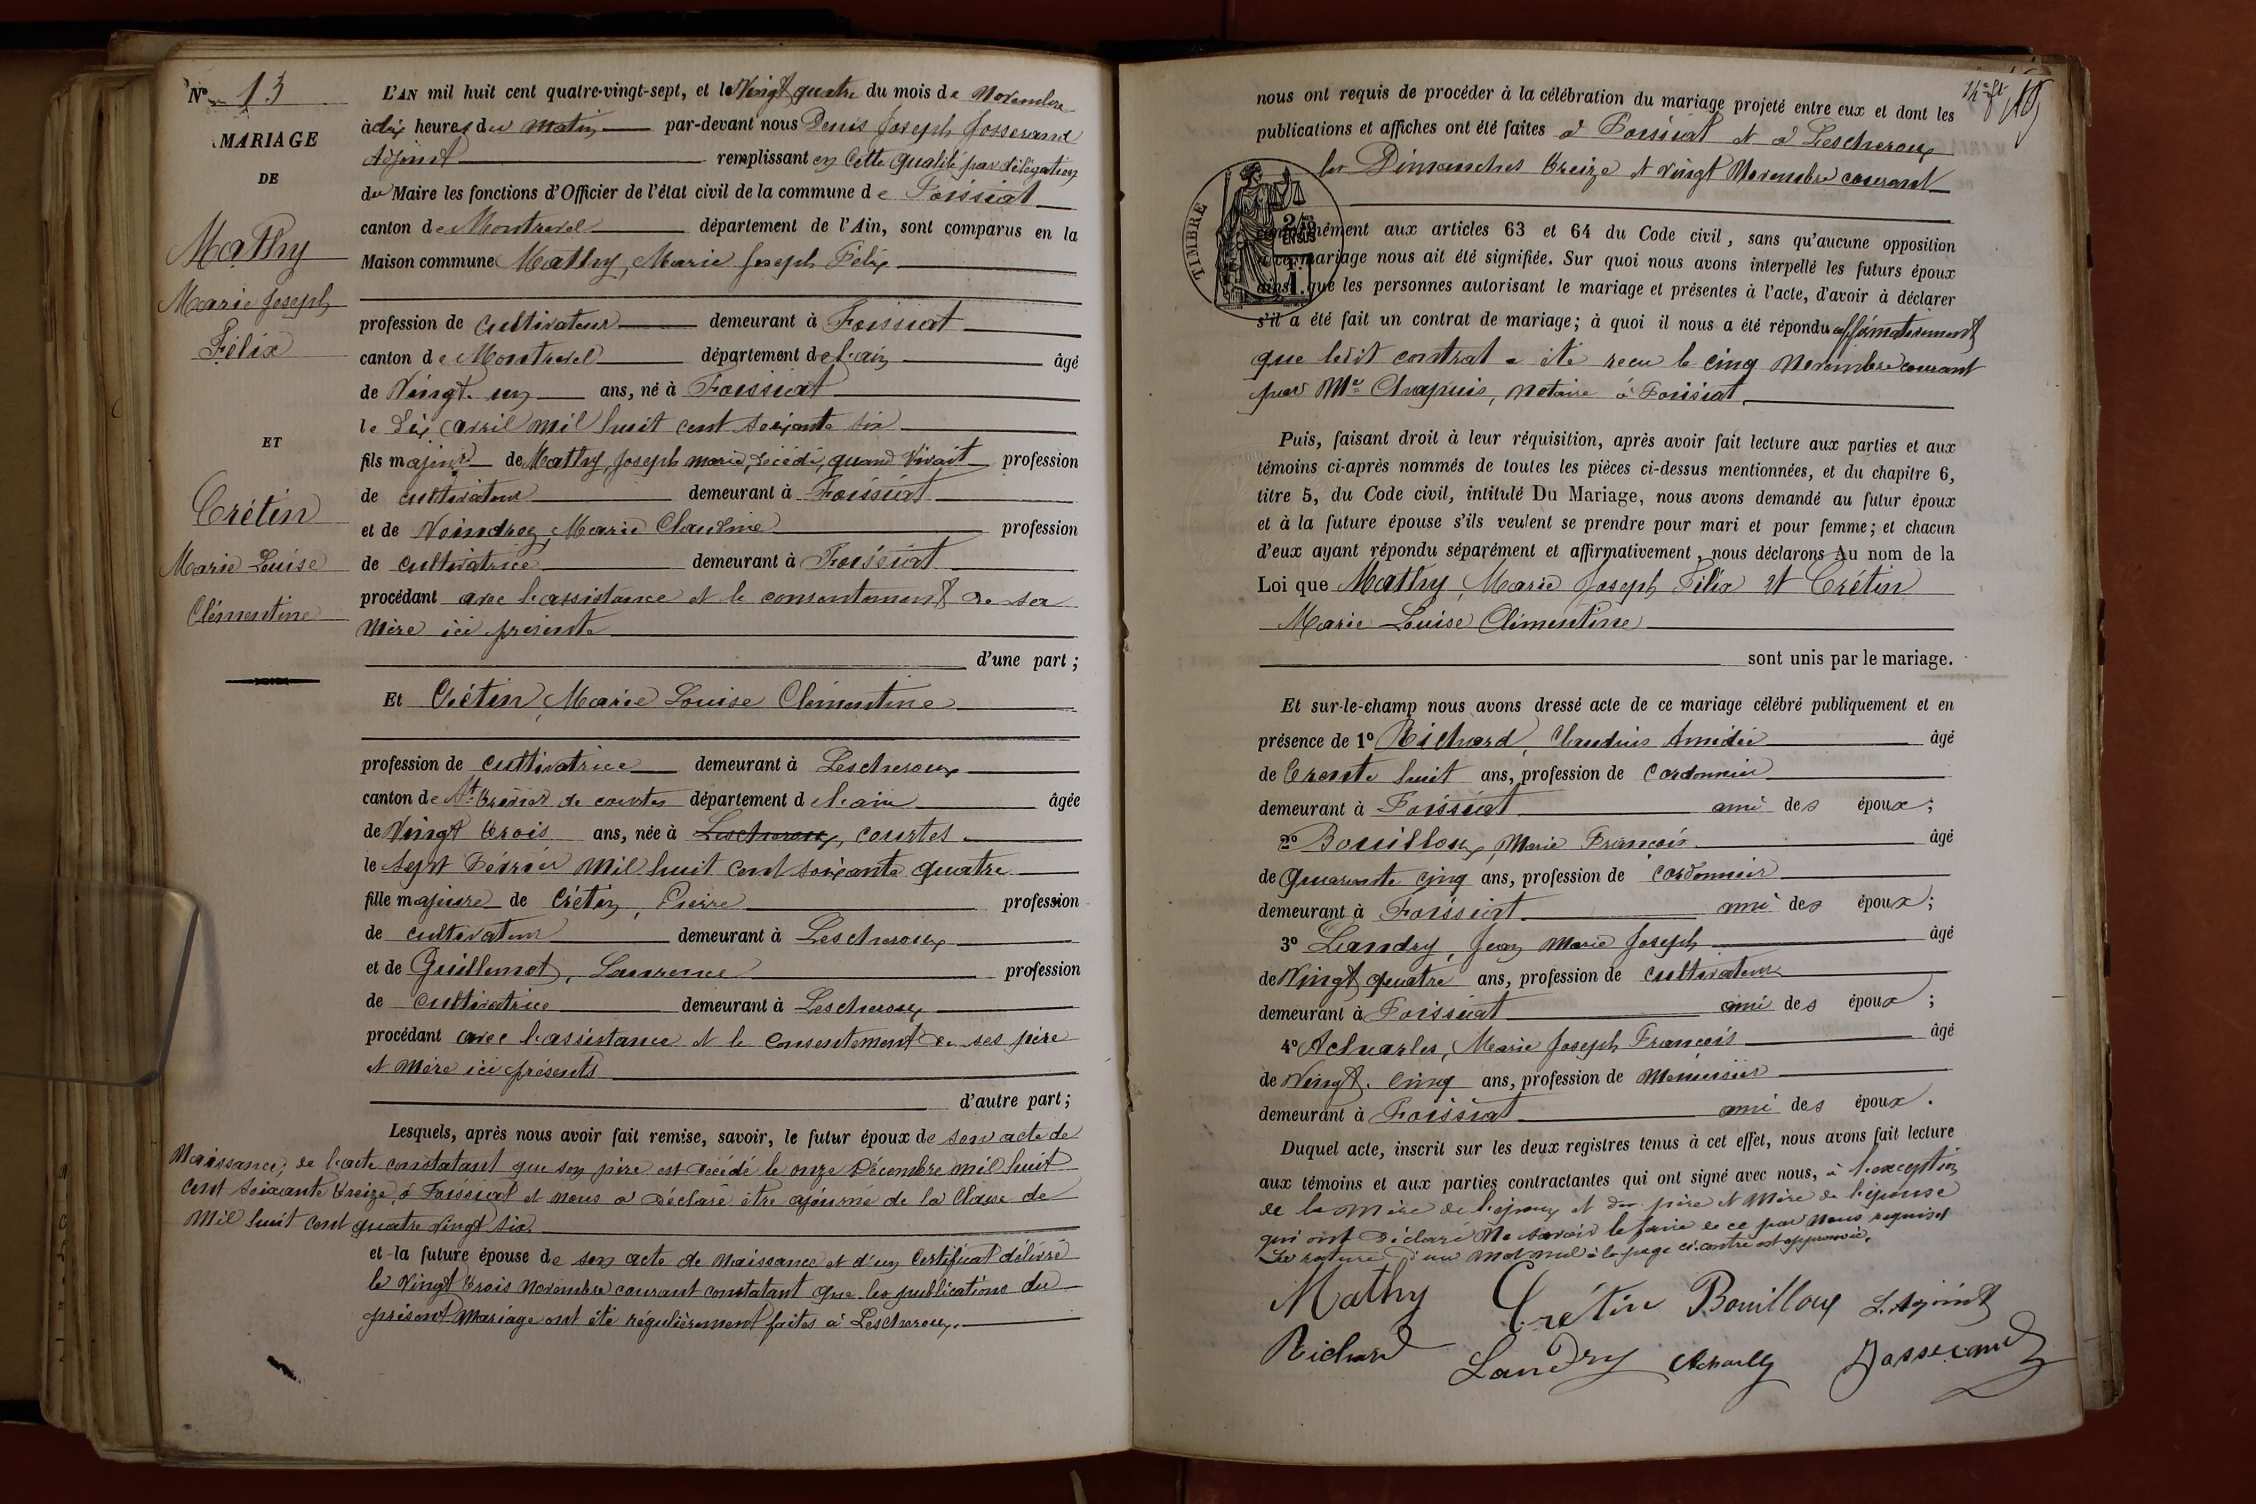 N° 13
MARIAGE
DE
Mathy
Marie Joseph
Félix
ET
Crétin
Marie Louise
Clémentine
L'AN mil huit cent quatre-vingt-sept, et le Vingt quatre du mois de Novembre
à dix heures du matin par-devant nous Denis Joseph Josserand
Adjoint remplissant en cette qualité par délégation
du Maire les fonctions d'Officier de l'état civil de la commune de Foissiat
canton de Montrevel département de l'Ain, sont comparus en la
Maison commune Mathy, Marie Joseph Félix
profession de cultivateur demeurant à Foissiat
canton de Montrevel département de l'ain âgé
de Vingt un ans, né à Foissiat
le dix avril mil huit cent soixante six
fils majeur de Mathy, Joseph marie, décédé, quand vivait profession
de cultivateur demeurant à Foissiat
et de Voindroz, Marie Claudine profession
de cultivatrice demeurant à Foissiat
procédant avec l'assistance et le consentement de sa
mère ici présente
d'une part ;
Et Crétin, Marie Louise Clémentine
profession de cultivatrice demeurant à Lescheroux
canton de St. Trivier de courtes département de l'ain âgée
de Vingt trois ans, née à Lescheroux, courtes
le sept Février mil huit cent soixante quatre
fille majeure de Crétin, Pierre profession
de cultivateur demeurant à Lescheroux
et de Guillemot, Laurence profession
de cultivatrice demeurant à Lescheroux
procédant avec l'assistance et le consentement de ses père
et mère ici présents
d'autre part ;
Lesquels, après nous avoir fait remise, savoir, le futur époux de son acte de
naissance, de l'acte constatant que son père est décédé le onze Décembre mil huit
cent soixante treize, à Foissiat et nous a déclaré être ajourné de la classe de
mil huit cent quatre vingt six
et la future épouse de son acte de naissance et d'un certificat délivré
le vingt trois Novembre courant constatant que les publications du
présent mariage ont été régulièrement faites à Lescheroux.
nous ont requis de procéder à la célébration du mariage projeté entre eux et dont les
publications et affiches ont été faites à Foissiat et à Lescheroux
les Dimanches treize et vingt Novembre courant
TIMBRE
conformément aux articles 63 et 64 du Code civil, sans qu'aucune opposition
à ce mariage nous ait été signifiée. Sur quoi nous avons interpellé les futurs époux
ainsi que les personnes autorisant le mariage et présentes à l'acte, d'avoir à déclarer
s'il a été fait un contrat de mariage ; à quoi il nous a été répondu affirmativement
que ledit contrat a été reçu le cinq Novembre courant
par Me Chapuis, notaire à Foissiat
Puis, faisant droit à leur réquisition, après avoir fait lecture aux parties et aux
témoins ci-après nommés de toutes les pièces ci-dessus mentionnées, et du chapitre 6,
titre 5, du Code civil, intitulé Du Mariage, nous avons demandé au futur époux
et à la future épouse s'ils veulent se prendre pour mari et pour femme ; et chacun
d'eux ayant répondu séparément et affirmativement, nous déclarons Au nom de la
Loi que Mathy, Marie Joseph Félix et Crétin
Marie Louise Clémentine
sont unis par le mariage.
Et sur-le-champ nous avons dressé acte de ce mariage célébré publiquement et en
présence de 1° Richard, Claudius Amédée âgé
de trente huit ans, profession de cordonnier
demeurant à Foissiat ami des époux ;
2° Bouilloux, Marie François âgé
de quarante cinq ans, profession de cordonnier
demeurant à Foissiat ami des époux ;
3° Landry, Jean Marie Joseph âgé
de Vingt quatre ans, profession de cultivateur
demeurant à Foissiat ami des époux ;
4° Acharles, Marie Joseph François âgé
de Vingt cinq ans, profession de menuisier
demeurant à Foissiat ami des époux.
Duquel acte, inscrit sur les deux registres tenus à cet effet, nous avons fait lecture
aux témoins et aux parties contractantes qui ont signé avec nous, à l'exception
de la mère de l'époux et des père et mère de l'épouse
qui ont déclaré ne savoir le faire de ce par nous requis
La rature d'un mot nul à la page ci-contre est approuvée.
Mathy Crétin Bouilloux L. Adjoint
Richard Landry Josserand